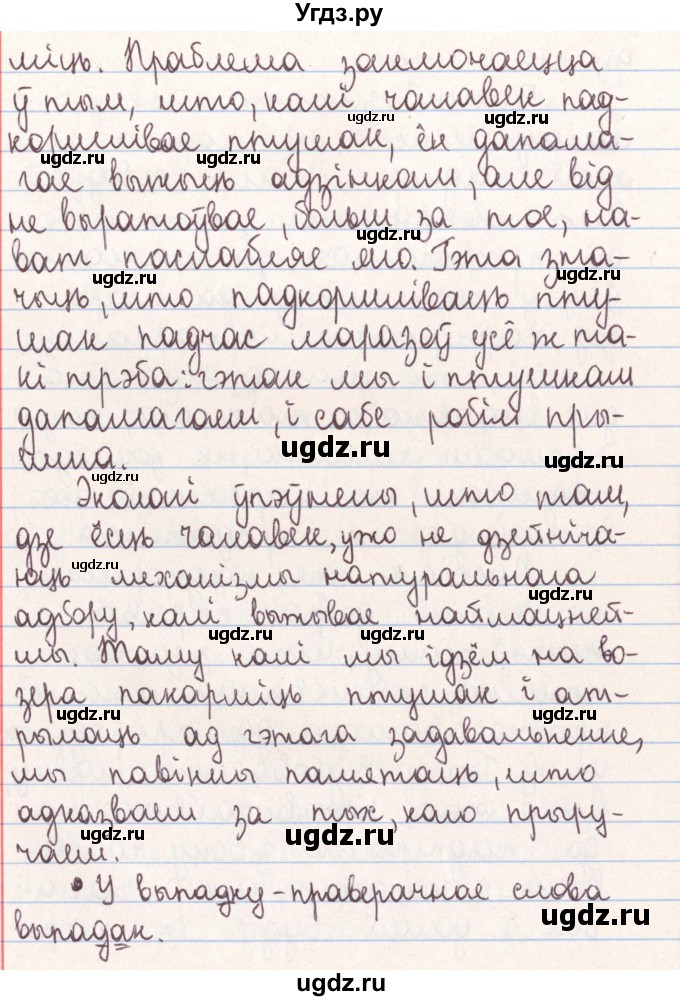 Угдз.ру
міць. Праблема заключаецца
ў тым, што, калі чалавек пад-
кормлівае птушак, ён дапама-
гае выжыць адзінкам, але від
не выратоўвае, больш за тое, на-
ват паслабляе яго. Гэта зна-
чыць, што падкормліваць пту-
шак падчас маразоў усё ж та-
кі трэба: гэтак мы і птушкам
дапамагаем, і сабе робім пры-
емна.
Эколагі ўпэўнены, што там,
дзе ёсць чалавек, ужо не дзейніча-
юць механізмы натуральнага
адбору, калі выжывае наймацней-
шы. Таму калі мы ідзём на во-
зера пакарміць птушак і ат-
рымаць ад гэтага задавальненне,
мы павінны памятаць, што
адказваем за тых, каго прыру-
чаем.
• У выпадку - праверачнае слова
выпадак.
ugdz.ru